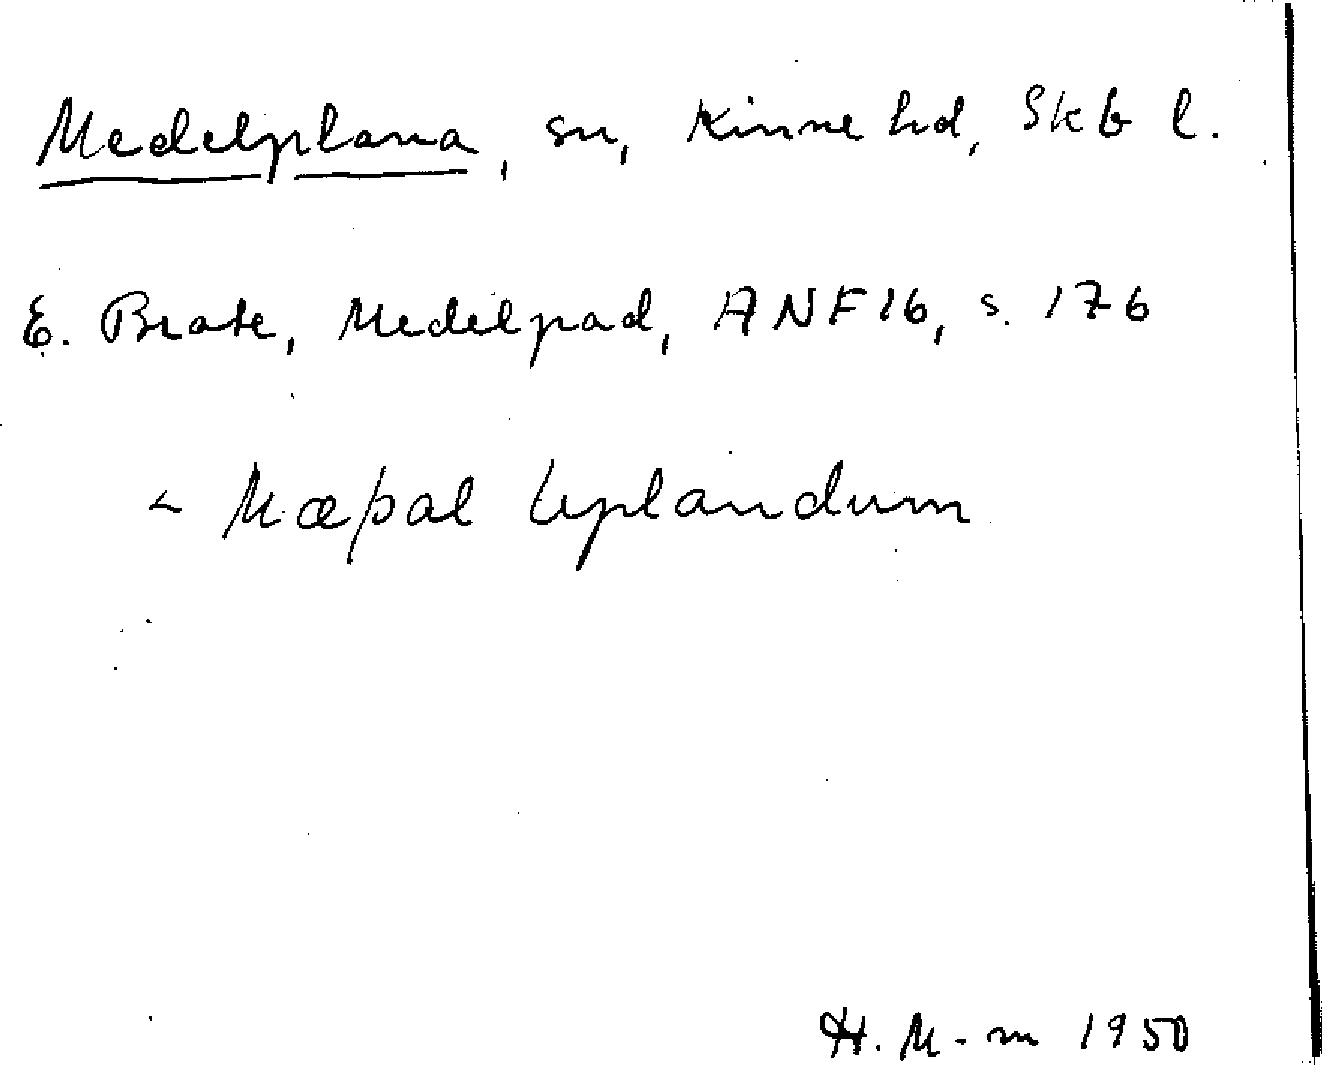 Medelplana, sn, Kinne hd, Skb l.
E. Brate, Medelpad, ANF 16, s. 176
< Mæþal Uplandum
H. M-m 1950